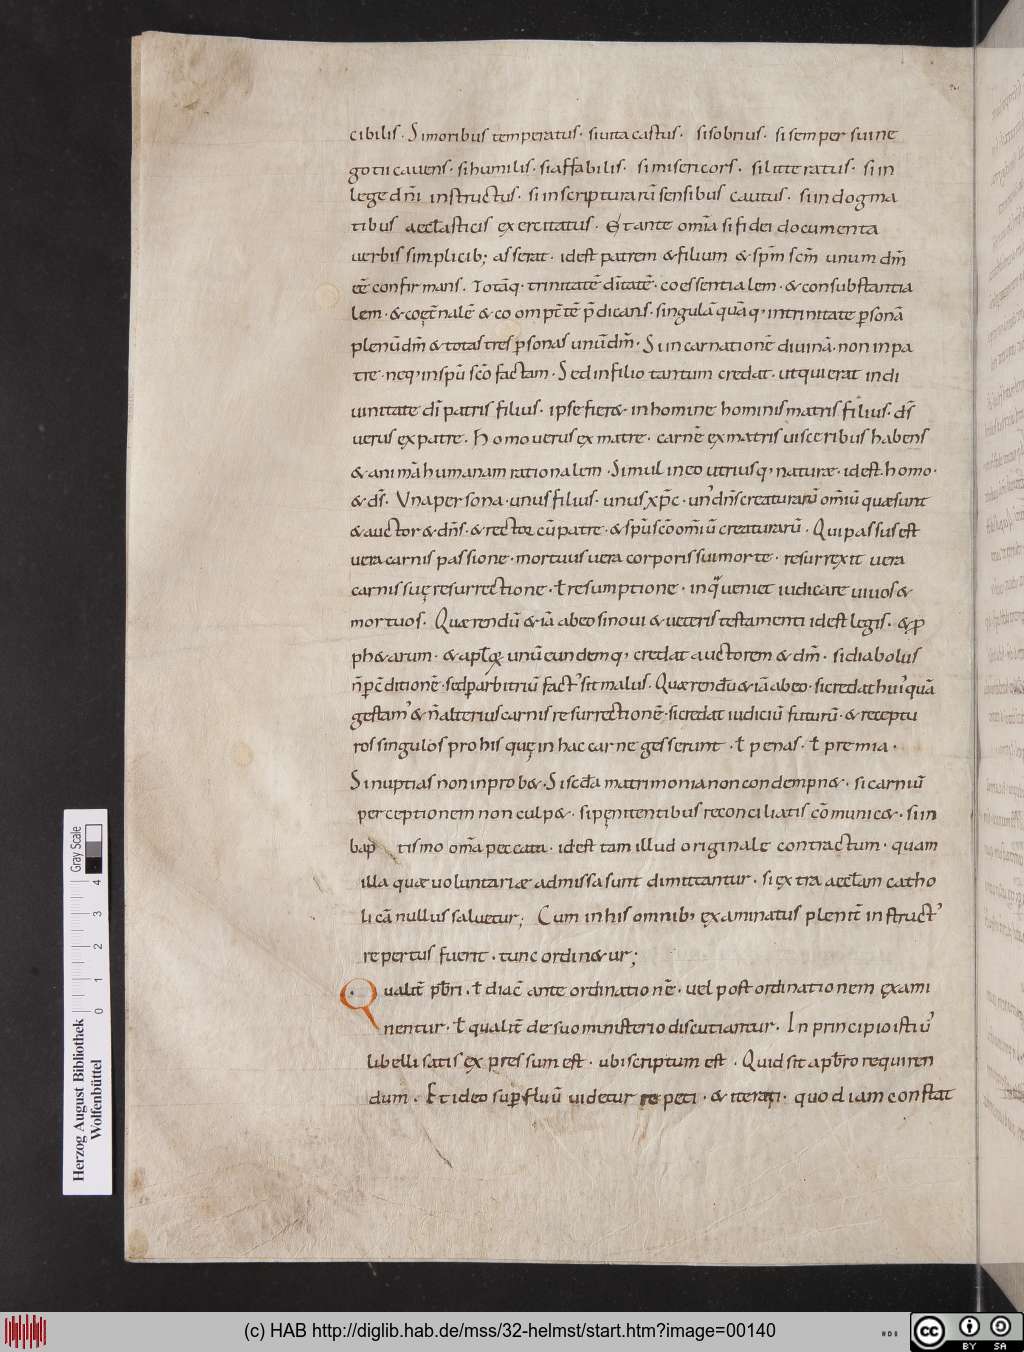 cibilis. Si moribus temperatus. si uita castus. si sobrius. si semper sui ne
gotii cauens. si humilis. si affabilis. si misericors. si litteratus. si in
lege dñi instructus. si in scripturarū sensibus cautus. si in dogma
tibus aecclasticis exercitatus. Et ante omīa si fidei documenta
uerbis simplicib; asserat. idest patrem & filium & sp̄m sc̄m unum dm̄
eē confirmans. Totāq. trinitatē dītatē. coessentialem. & consubstantia
lem. & coęt̄nalē & coomp̄tētē p̄dicans. singulā quāq, in trinitate p̄sonā
plenū dm̄ & totas tres p̄sonas unū dm̄. Si incarnationē diuinā. non in pa
tre. neq, in sp̄u sc̄o factam. Sed in filio tantum credat. ut qui erat in di
uinitate dī patris filius. ipse fier& in homine hominis matris filius. ds̄
uerus ex patre. Homo uerus ex matre. carnē ex matris uisceribus habens
& animā humanam rationalem. Simul in eo utriusq, naturæ. idest. homo.
& ds̄. Vna persona. unus filius. unus xp̄c. un' dn̄s creaturarū omīū quæ sunt
& auctor & dn̄s. & rector cū patre. & sp̄u sc̄o omīū creaturarū. Qui passus est
uera carnis passione. mortuus uera corporis sui morte. resurrexit uera
carnis suę resurrectione. ł resumptione. in q̈ ueniet iudicare uiuos &
mortuos. Quærendū & iā ab eo si noui & ueteris testamenti idest legis. & p̄
ph&arum. & apl̄orum unū eundemq, credat auctorem & dm̄. si diabolus
n̄ p c̄ditionē. sed p arbitriū fact' sit malus. Quærendū & iā ab eo. si credat hui' quā
gestam' & n̄ alterius carnis resurrectionē. si credat iudiciū futurū. & receptu
ros singulos pro his quę in hac carne gesserunt. ł penas. ł premia.
Si nuptias non inprob&. Si scd̄a matrimonia non condempn&. si carniū
perceptionem non culp&. si pęnitentibus reconciliatis cōmunic&. si in
bap tismo omīa peccata. idest tam illud originale contractum. quam
illa quæ uoluntariæ admissa sunt dimittantur. si extra aeccl̄am catho
licā nullus saluetur; Cum in his omnib, examinatus plenit̄ instruct'
repertus fuerit. tunc ordin&ur;
Qualit̄ pb̄ri. ł diac̄ ante ordinationē. uel post ordinationem exami
nentur. ł qualit̄ de suo ministerio discutiantur. In principio isti'
libelli satis expressum est. ubi scriptum est. Quid sit a pb̄ro requiren
dum. Et ideo supfluū uidetur repeti. & iterari. quod iam constat
Gray Scale
0 1 2 3 4
Herzog August Bibliothek
Wolfenbüttel
(c) HAB http://diglib.hab.de/mss/32-helmst/start.htm?image=00140
cc BY SA